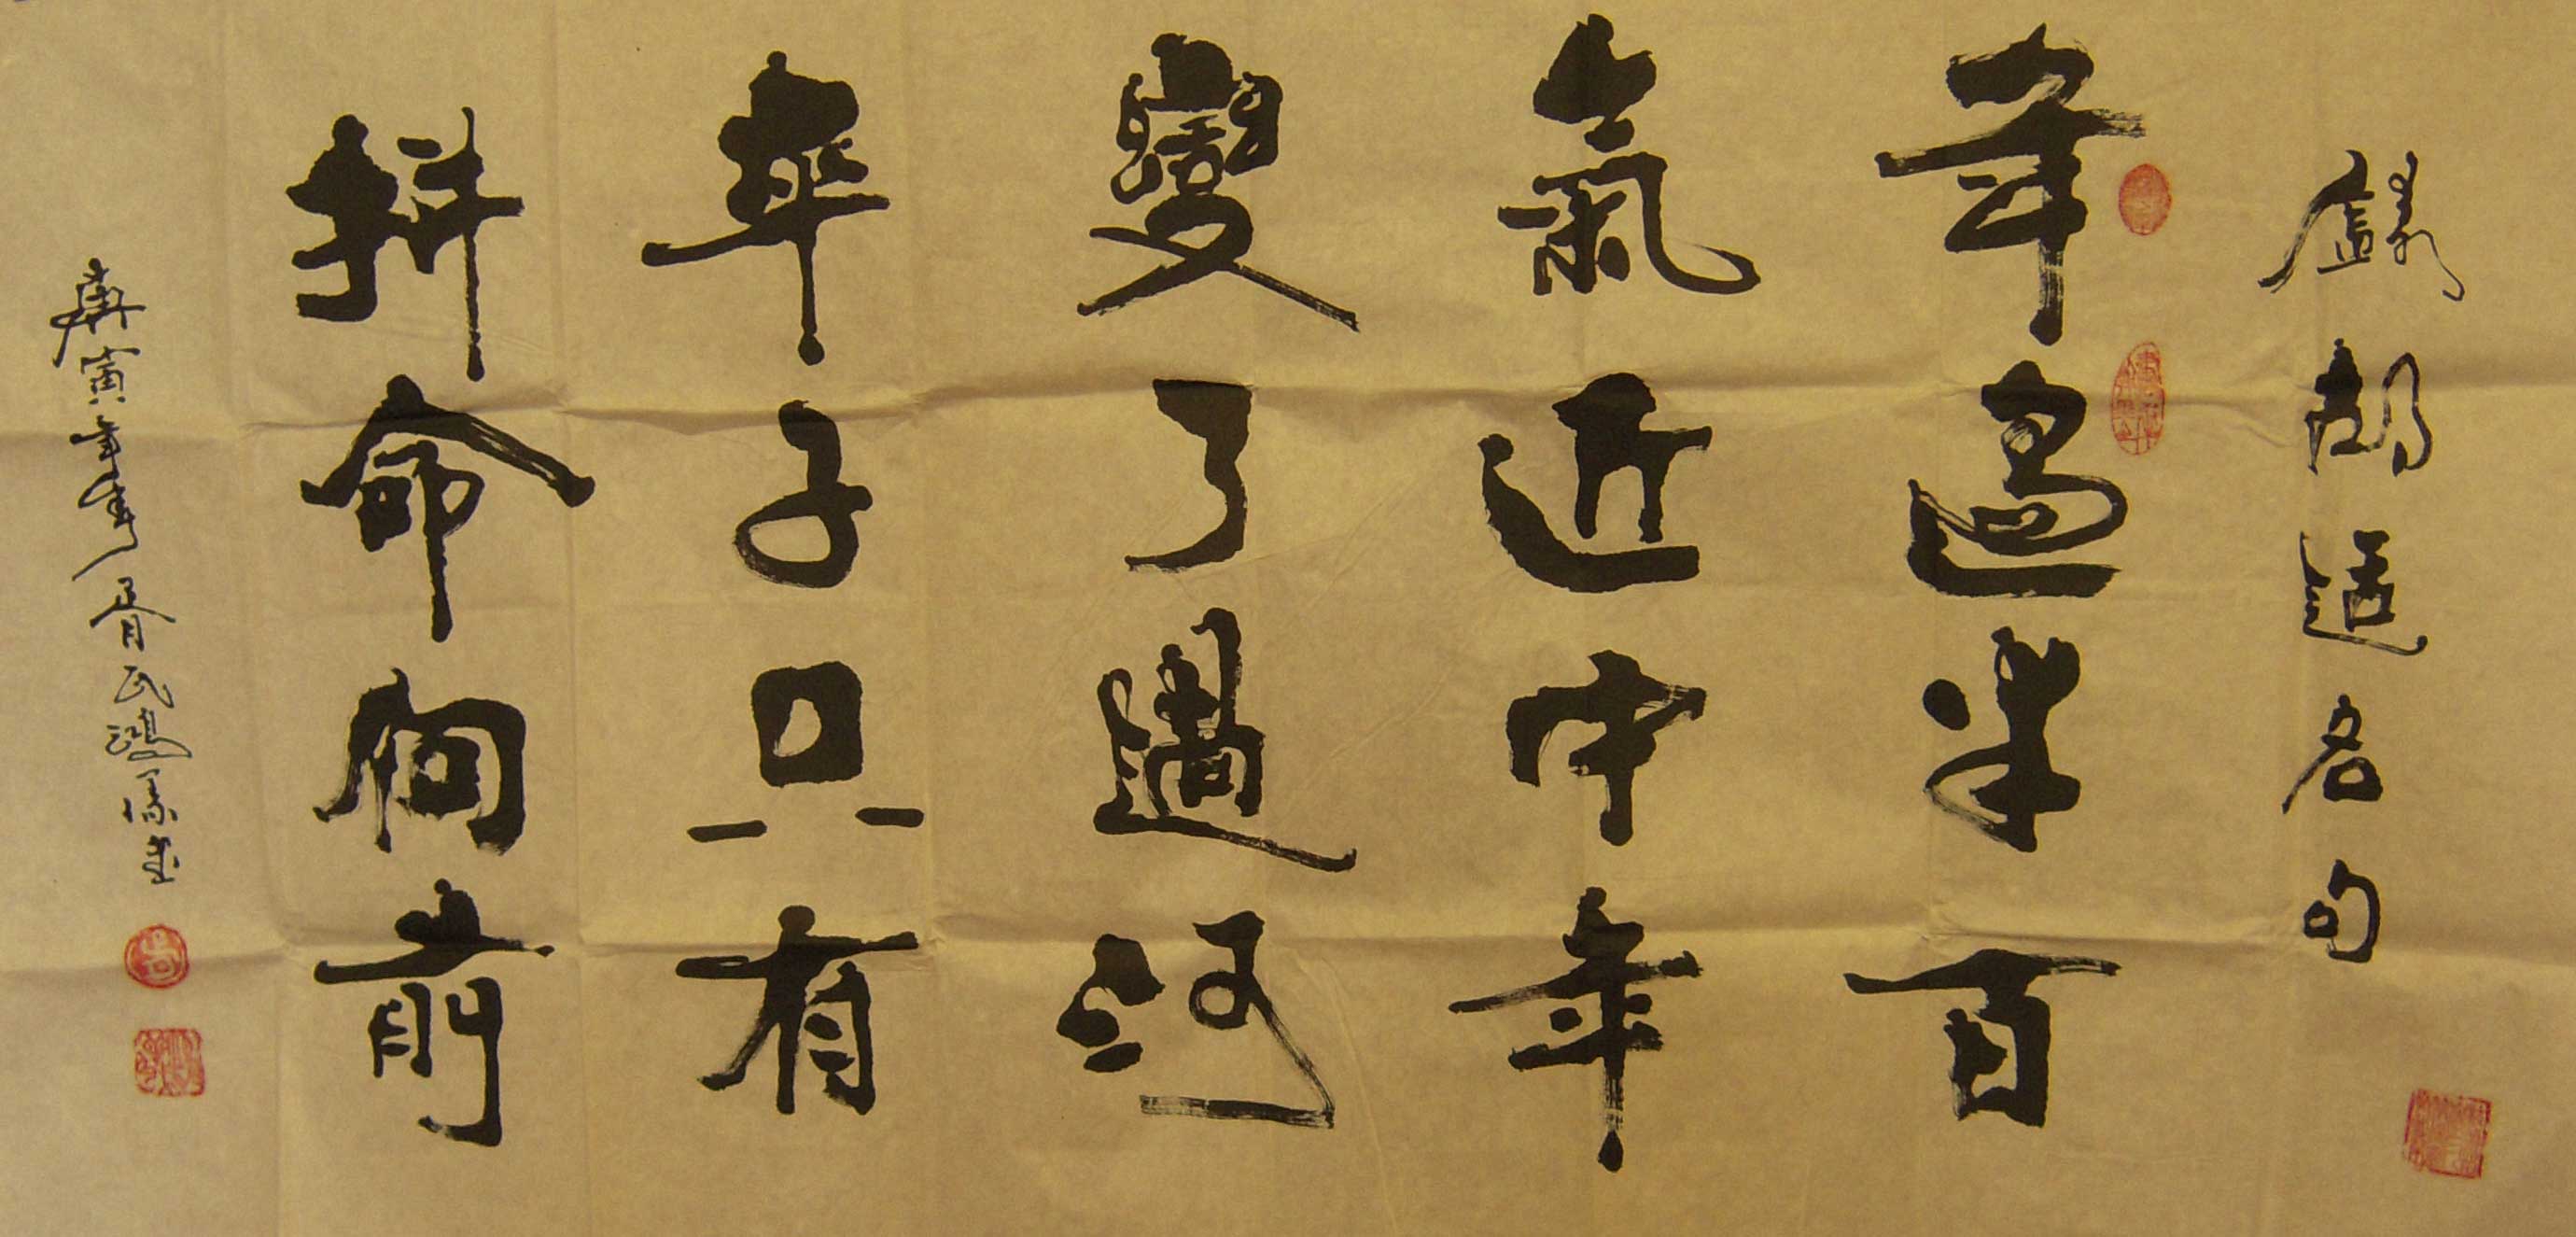 錄胡適名句
年過半百
氣近中年
變了過河
卒子只有
拼命向前
庚寅年 民鴻 書